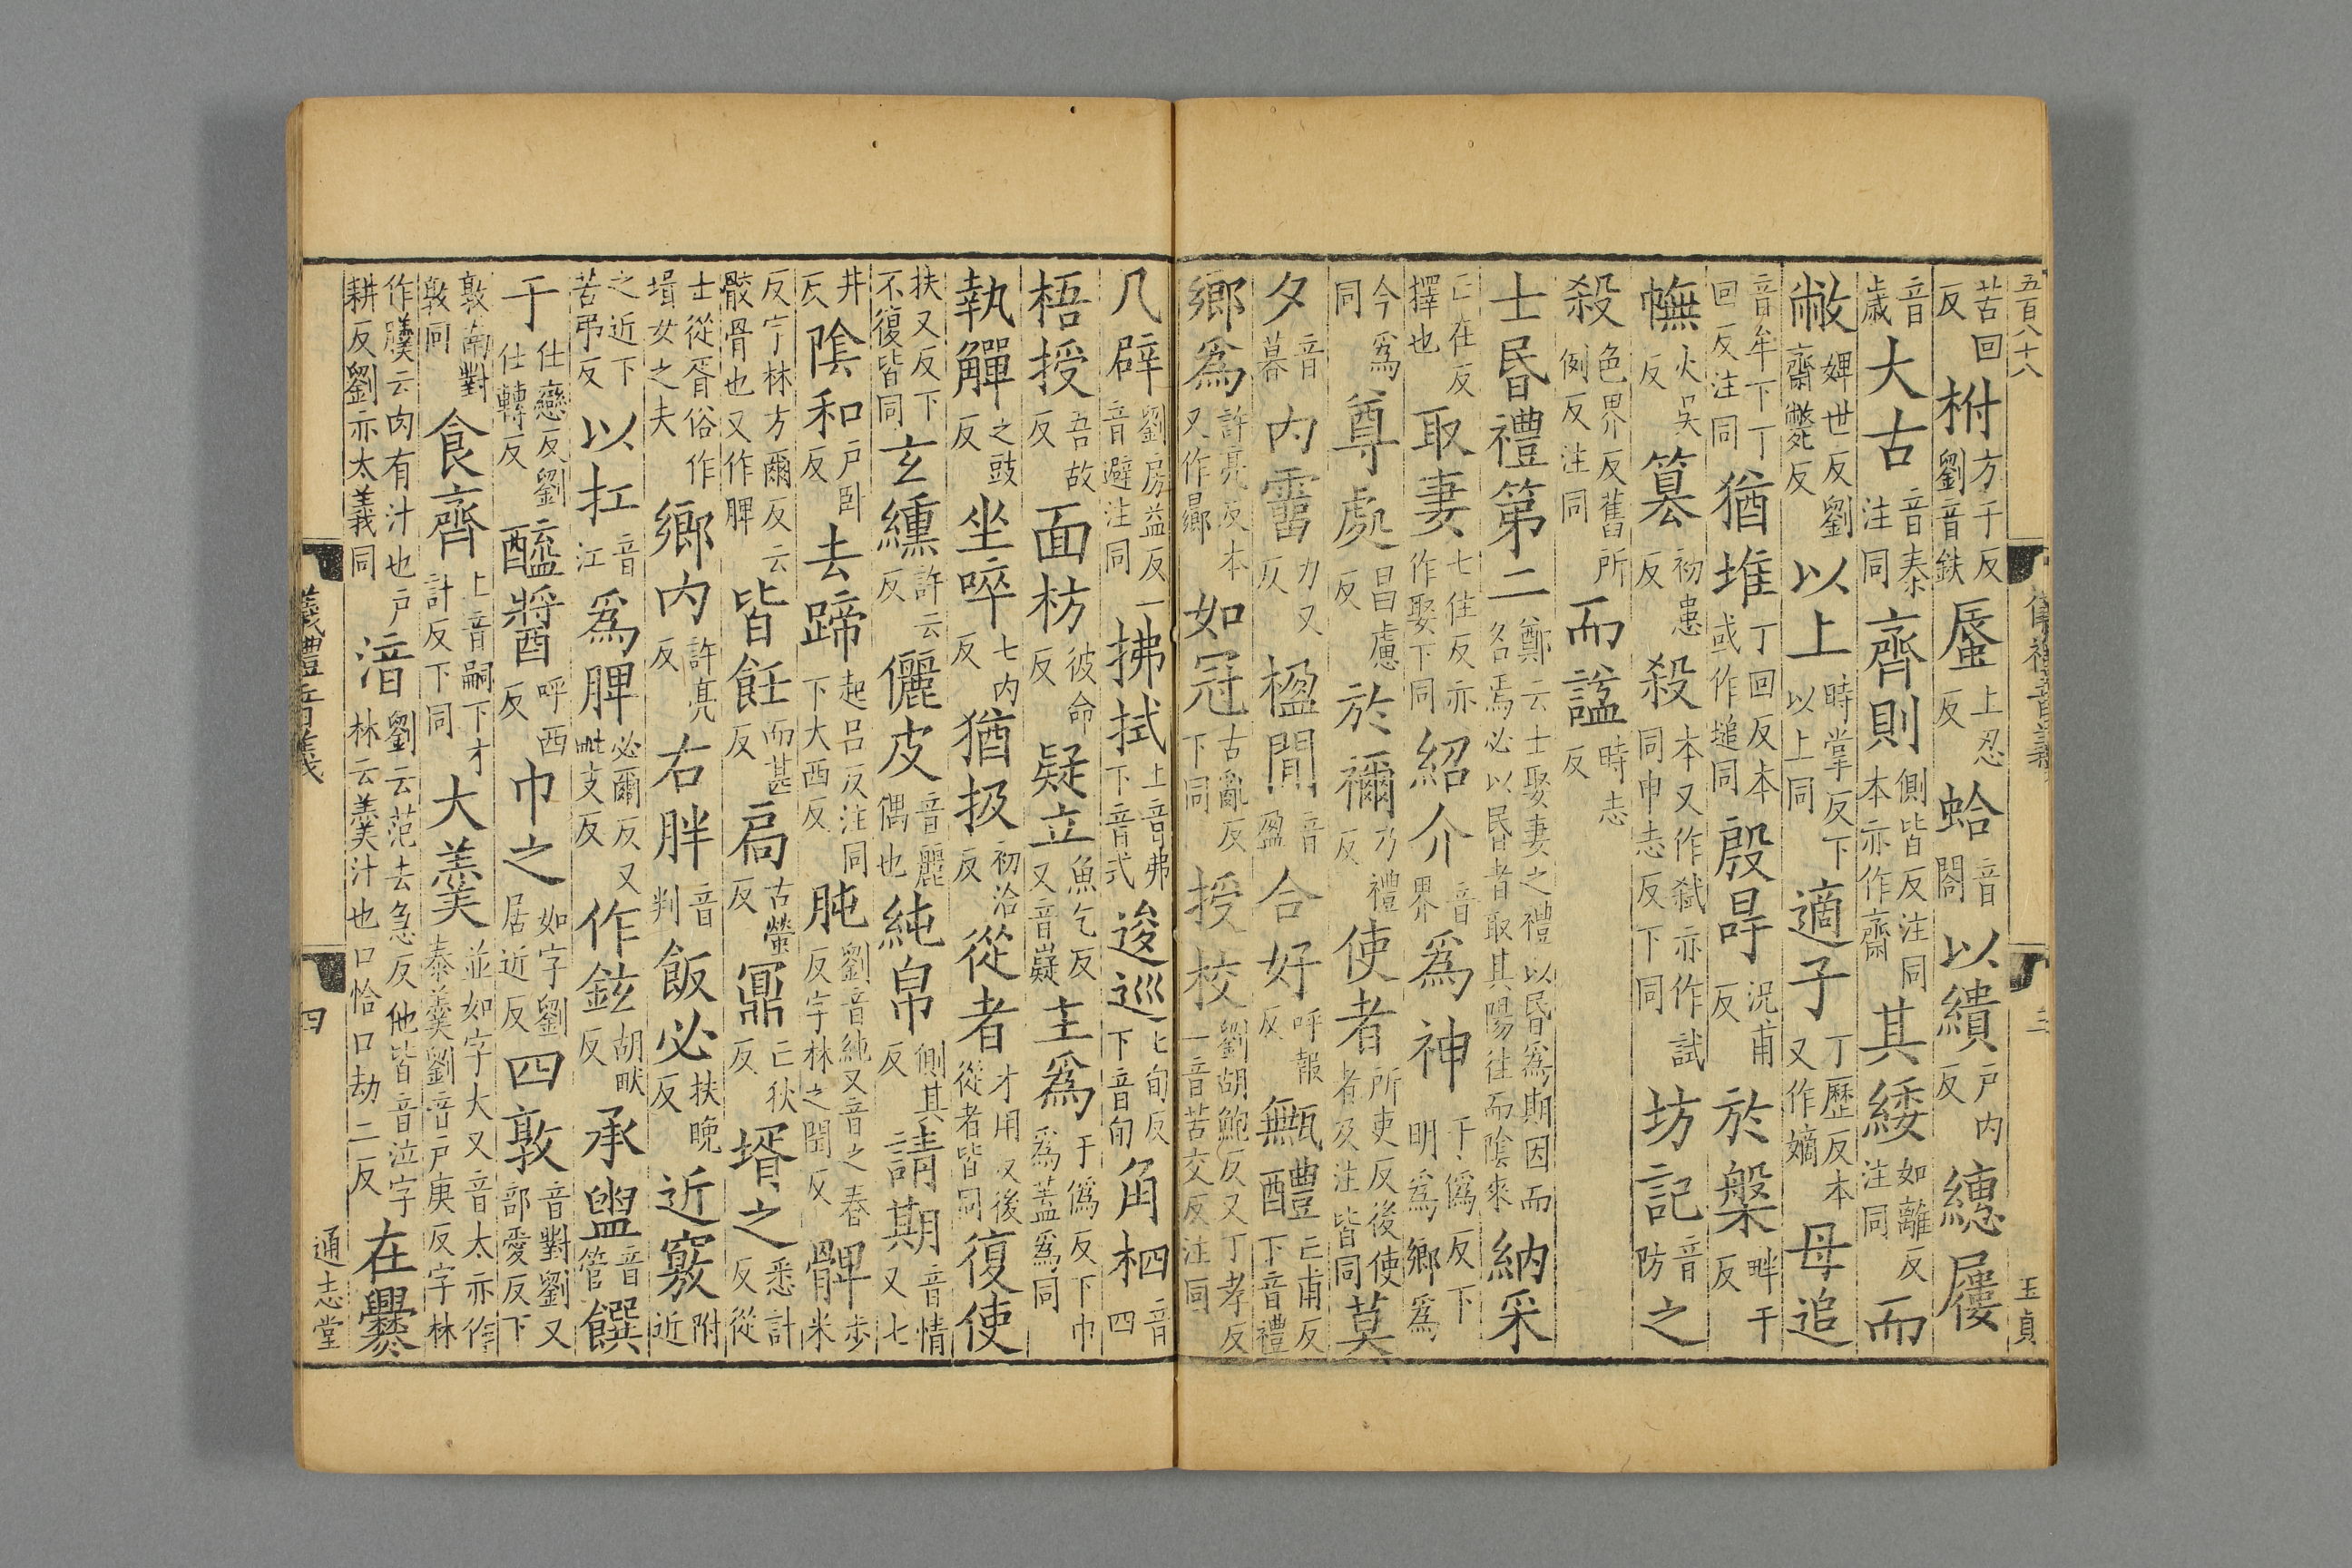 五百八十八 儀禮音義 三 王貞
苦回反 柎方于反劉音鈇 蜃上忍反 蛤音閤 以繢戶内反 繐屨
音歲 大古音泰注同 齊則側皆反注同本亦作齋 其緌如離反注同 而
敝婢世反劉齋斃反 以上時掌反下以上同 適子丁歷反本又作嫡 母追
音牟下丁回反注同 猶堆丁回反本或作塠同 殷冔況甫反 於槃畔干反
幠火吴反 篡初患反 殺本又作弑亦作試同申志反下同 坊記音防 之
殺色界反舊所例反注同 而諡時志反
士昏禮第二鄭云士娶妻之禮以昏爲期因而名焉必以昏者取其陽往而陰來 納采
亡在反擇也 取妻七住反亦作娶下同 紹介音界 爲神于僞反下明爲鄉爲
今爲同 尊處昌慮反 於禰乃禮反 使者所吏反後使者及注皆同 莫
夕音暮 内霤力又反 楹閒音盈 合好呼報反 甒醴亡甫反下音禮
鄉爲許亮反本又作曏 如冠古亂反下同 授校劉胡鮑反又丁孝反一音苦交反注同
几辟劉房益反一音避注同 拂拭上音弗下音式 逡巡七旬反下音旬 角柶音四
梧授吾故反 面枋彼命反 疑立魚乞反又音嶷 主爲于僞反下巾爲蓋爲同
執觶之豉反 坐啐七内反 猶扱初洽反 從者才用反後從者皆同 復使
扶又反下不復皆同 玄纁許云反 儷皮音麗偶也 純帛側其反 請期音情又七
井反 陰和戶卧反 去蹄起呂反注同下大西反 肫劉音純又音之春反字林之閏反 髀步米
反字林方爾反云骰骨也又作脾 皆飪而甚反 扃古螢反 鼏亡狄反 壻之悉計反從
士從胥俗作壻女之夫 鄉内許亮反 右胖音判 飯必扶晚反 近竅附近
之近下苦弔反 以扛音江 爲脾必爾反又毗支反 作鉉胡畎反 承盥音管 饌
于仕戀反劉仕轉反 醯醬呼西反 巾之如字劉居近反 四敦音對劉又部愛反下
敦南對敦同 食齊上音嗣下才計反下同 大羹並如字大又音太亦作泰羹劉音戶庚反字林
作𩱧云肉有汁也戶耕反劉亦太義同 湆劉云范去急反他皆音泣字林云羹汁也口恰口劫二反 在爨
儀禮音義 四 通志堂